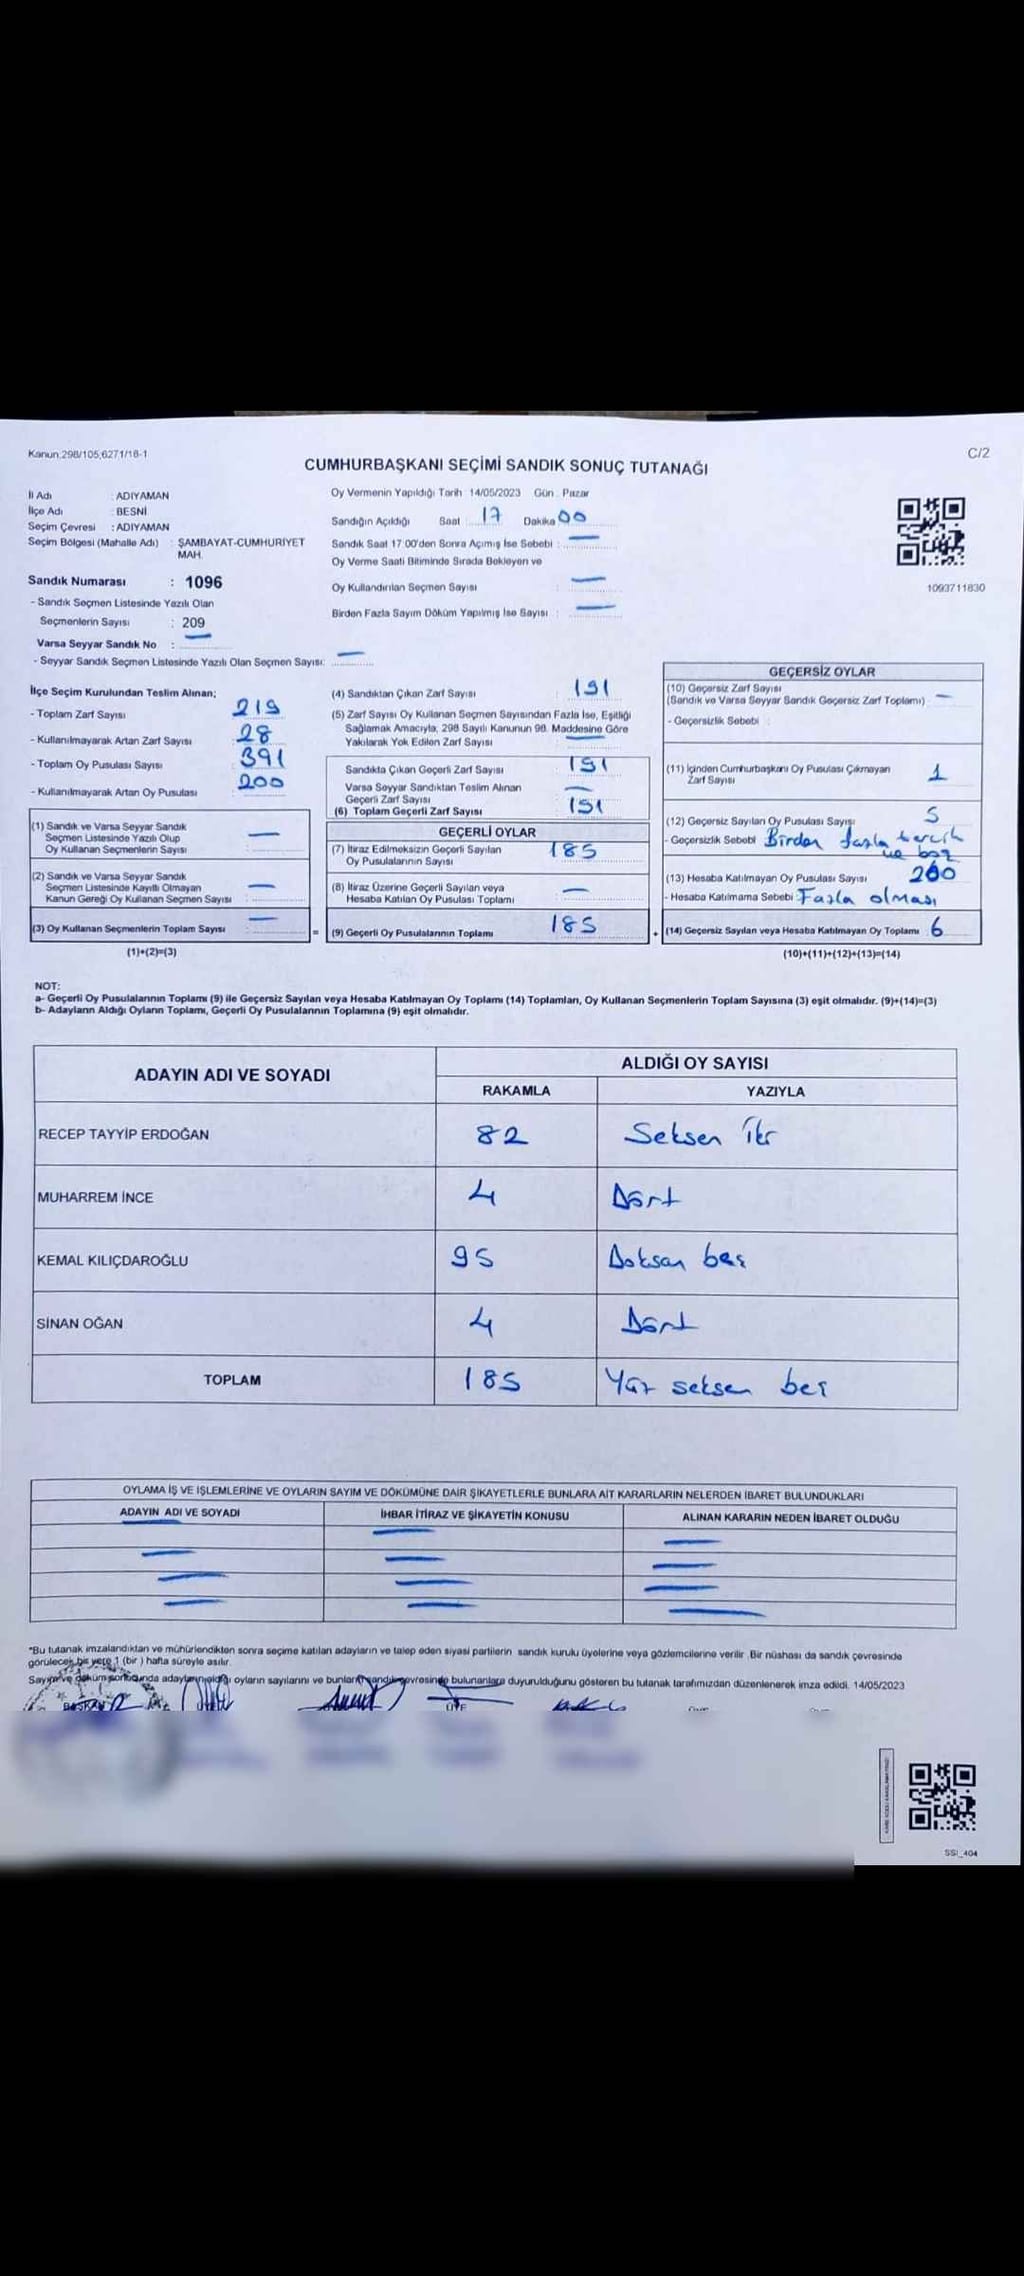 Kanun 298/105,6271/18-1
C/2
CUMHURBAŞKANI SEÇİMİ SANDIK SONUÇ TUTANAĞI
İl Adı : ADIYAMAN
İlçe Adı : BESNİ
Seçim Çevresi : ADIYAMAN
Seçim Bölgesi (Mahalle Adı) : ŞAMBAYAT-CUMHURİYET
MAH.
Sandık Numarası : 1096
- Sandık Seçmen Listesinde Yazılı Olan
Seçmenlerin Sayısı : 209
Varsa Seyyar Sandık No : —
- Seyyar Sandık Seçmen Listesinde Yazılı Olan Seçmen Sayısı: —
Oy Vermenin Yapıldığı Tarih 14/05/2023 Gün : Pazar
Sandığın Açıldığı Saat 17 Dakika 00
Sandık Saat 17 00'den Sonra Açımış İse Sebebi : —
Oy Verme Saati Bitiminde Sırada Bekleyen ve
Oy Kullandırılan Seçmen Sayısı : —
Birden Fazla Sayım Döküm Yapılmış İse Sayısı : —
1093711830
İlçe Seçim Kurulundan Teslim Alınan;
- Toplam Zarf Sayısı : 219
- Kullanılmayarak Artan Zarf Sayısı : 28
- Toplam Oy Pusulası Sayısı : 391
- Kullanılmayarak Artan Oy Pusulası : 200
(1) Sandık ve Varsa Seyyar Sandık
Seçmen Listesinde Yazılı Olup
Oy Kullanan Seçmenlerin Sayısı : —
(2) Sandık ve Varsa Seyyar Sandık
Seçmen Listesinde Kayıtlı Olmayan
Kanun Gereği Oy Kullanan Seçmen Sayısı : —
(3) Oy Kullanan Seçmenlerin Toplam Sayısı : —
(1)+(2)=(3)
=
(4) Sandıktan Çıkan Zarf Sayısı : 191
(5) Zarf Sayısı Oy Kullanan Seçmen Sayısından Fazla İse, Eşitliği
Sağlamak Amacıyla, 298 Sayılı Kanunun 98. Maddesine Göre
Yakılarak Yok Edilen Zarf Sayısı : —
Sandıkta Çıkan Geçerli Zarf Sayısı : 191
Varsa Seyyar Sandıktan Teslim Alınan
Geçerli Zarf Sayısı : —
(6) Toplam Geçerli Zarf Sayısı : 191
GEÇERLİ OYLAR
(7) İtiraz Edilmeksizin Geçerli Sayılan
Oy Pusulalarının Sayısı : 185
(8) İtiraz Üzerine Geçerli Sayılan veya
Hesaba Katılan Oy Pusulası Toplamı : —
(9) Geçerli Oy Pusulalarının Toplamı : 185
+
GEÇERSİZ OYLAR
(10) Geçersiz Zarf Sayısı
(Sandık ve Varsa Seyyar Sandık Geçersiz Zarf Toplamı) : —
- Geçersizlik Sebebi :
(11) İçinden Cumhurbaşkanı Oy Pusulası Çıkmayan
Zarf Sayısı : 1
(12) Geçersiz Sayılan Oy Pusulası Sayısı : 5
- Geçersizlik Sebebi Birden fazla tercih
ve boş
(13) Hesaba Katılmayan Oy Pusulası Sayısı : 200
- Hesaba Katılmama Sebebi : Fazla olması
(14) Geçersiz Sayılan veya Hesaba Katılmayan Oy Toplamı : 6
(10)+(11)+(12)+(13)=(14)
NOT:
a- Geçerli Oy Pusulalarının Toplamı (9) ile Geçersiz Sayılan veya Hesaba Katılmayan Oy Toplamı (14) Toplamları, Oy Kullanan Seçmenlerin Toplam Sayısına (3) eşit olmalıdır. (9)+(14)=(3)
b- Adayların Aldığı Oyların Toplamı, Geçerli Oy Pusulalarının Toplamına (9) eşit olmalıdır.
ADAYIN ADI VE SOYADI
ALDIĞI OY SAYISI
RAKAMLA YAZIYLA
RECEP TAYYİP ERDOĞAN 82 Seksen iki
MUHARREM İNCE 4 Dört
KEMAL KILIÇDAROĞLU 95 Doksan beş
SİNAN OĞAN 4 Dört
TOPLAM 185 Yüz seksen beş
OYLAMA İŞ VE İŞLEMLERİNE VE OYLARIN SAYIM VE DÖKÜMÜNE DAİR ŞİKAYETLERLE BUNLARA AİT KARARLARIN NELERDEN İBARET BULUNDUKLARI
ADAYIN ADI VE SOYADI İHBAR İTİRAZ VE ŞİKAYETİN KONUSU ALINAN KARARIN NEDEN İBARET OLDUĞU
*Bu tutanak imzalandıktan ve mühürlendikten sonra seçime katılan adayların ve talep eden siyasi partilerin sandık kurulu üyelerine veya gözlemcilerine verilir .Bir nüshası da sandık çevresinde
görülecek bir yere 1 (bir ) hafta süreyle asılır.
Sayım ve döküm sonucunda adayların aldığı oyların sayılarını ve bunların sandık çevresinde bulunanlara duyurulduğunu gösteren bu tutanak tarafımızdan düzenlenerek imza edildi. 14/05/2023
BAŞKAN ÜYE
SSİ_404